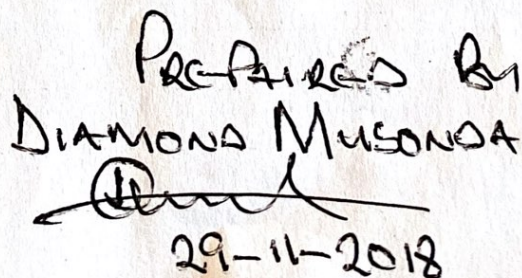 PREPAIRED By
DIAMOND MUSONDA
29-11-2018